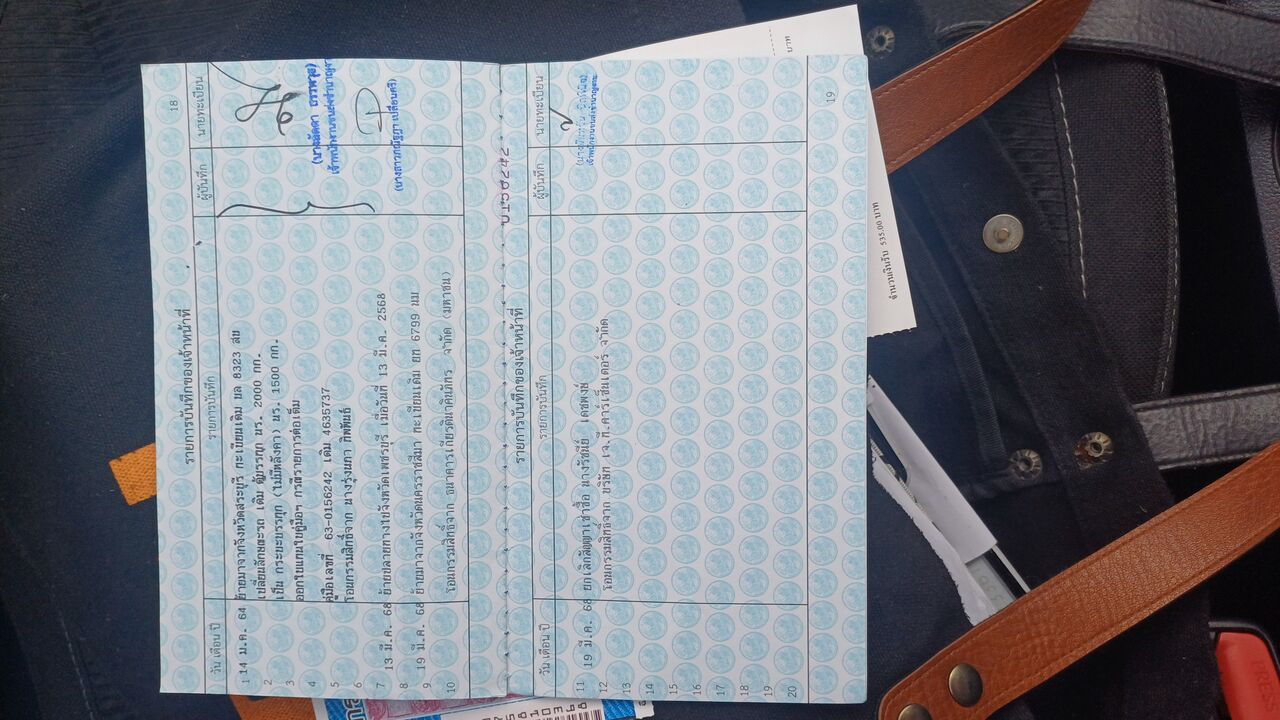 18
รายการบันทึกของเจ้าหน้าที่
วัน เดือน ปี รายการบันทึก ผู้บันทึก นายทะเบียน
1 14 ม.ค. 64 ย้ายมาจากจังหวัดสระบุรี ทะเบียนเดิม บล 8323 สบ
2 เปลี่ยนลักษณะรถ เดิม ตู้บรรทุก นร. 2000 กก.
3 เป็น กระบะบรรทุก (ไม่มีหลังคา) นร. 1500 กก.
4 ออกใบแทนใบคู่มือฯ กรณีรายการต่อเต็ม
5 คู่มือเลขที่ 63-0156242 เดิม 4635737
6 โอนกรรมสิทธิ์จาก นางรุ่งนภา
7 13 มี.ค. 68 ย้ายปลายทางไปจังหวัดเพชรบุรี เมื่อวันที่ 13 มี.ค. 2568
8
9 19 มี.ค. 68 ย้ายมาจากจังหวัดนครราชสีมา ทะเบียนเดิม ยก 6799 นม
10 โอนกรรมสิทธิ์จาก ธนาคารเกียรตินาคินภัทร จำกัด (มหาชน)
(นางลัดดา
เจ้าพนักงานขนส่งชำนาญงา
(นางสาวณัฐฎา เปลื่อนศรี)
0156242
รายการบันทึกของเจ้าหน้าที่
วัน เดือน ปี รายการบันทึก ผู้บันทึก นายทะเบียน
11 19 มี.ค. 68 ยกเลิกสัญญาเช่าซื้อ นางรัชนีย์ เดชพงษ์
12 โอนกรรมสิทธิ์จาก บริษัท เจ.ที.คาร์เซ็นเตอร์ จำกัด
13
14
15
16
17
18
19
20
เจ้าพนักงานขนส่งชำนาญงาน
19
บาท
จำนวนเงินรับ 535.00 บาท
PRESS